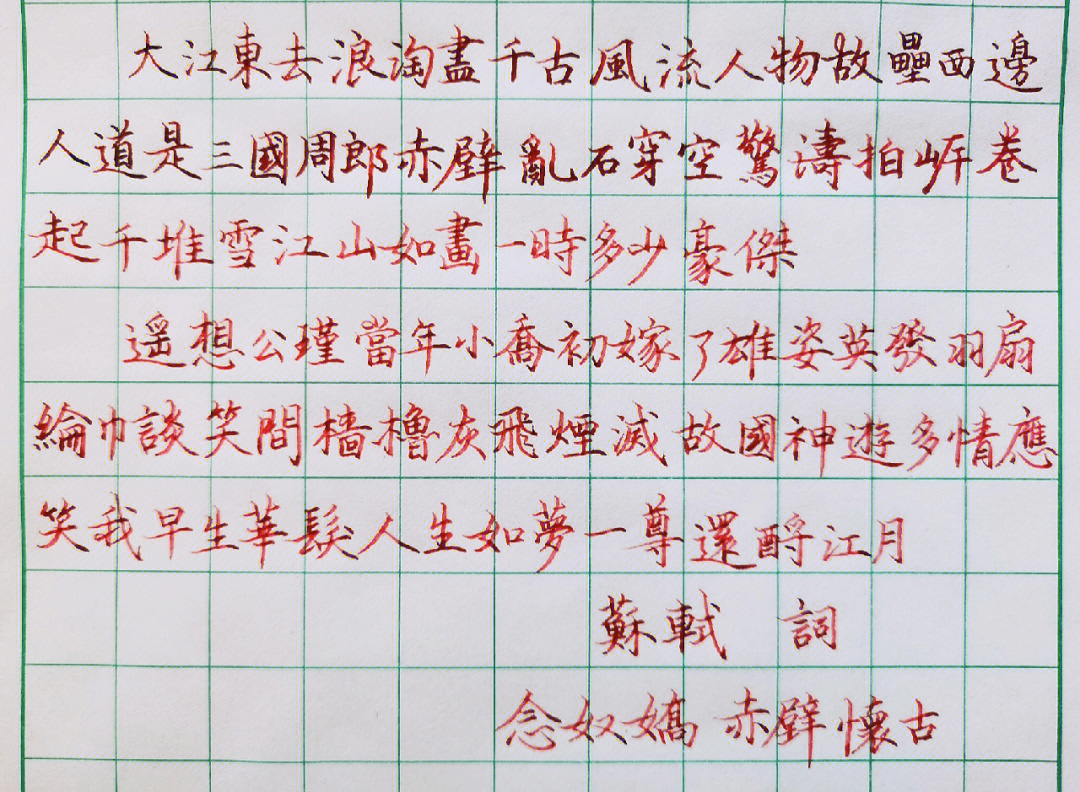 大江東去浪淘盡千古風流人物故壘西邊
人道是三國周郎赤壁亂石穿空驚濤拍岸卷
起千堆雪江山如畫一時多少豪傑
遥想公瑾當年小喬初嫁了雄姿英發羽扇
綸巾談笑間檣櫓灰飛煙滅故國神遊多情應
笑我早生華髮人生如夢一尊還酹江月
蘇軾 詞
念奴嬌 赤壁懷古